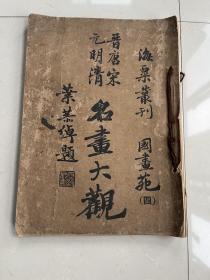 海粟叢刊 國畫苑(四)
晋唐宋
元明清
名畫大觀
葉恭綽題